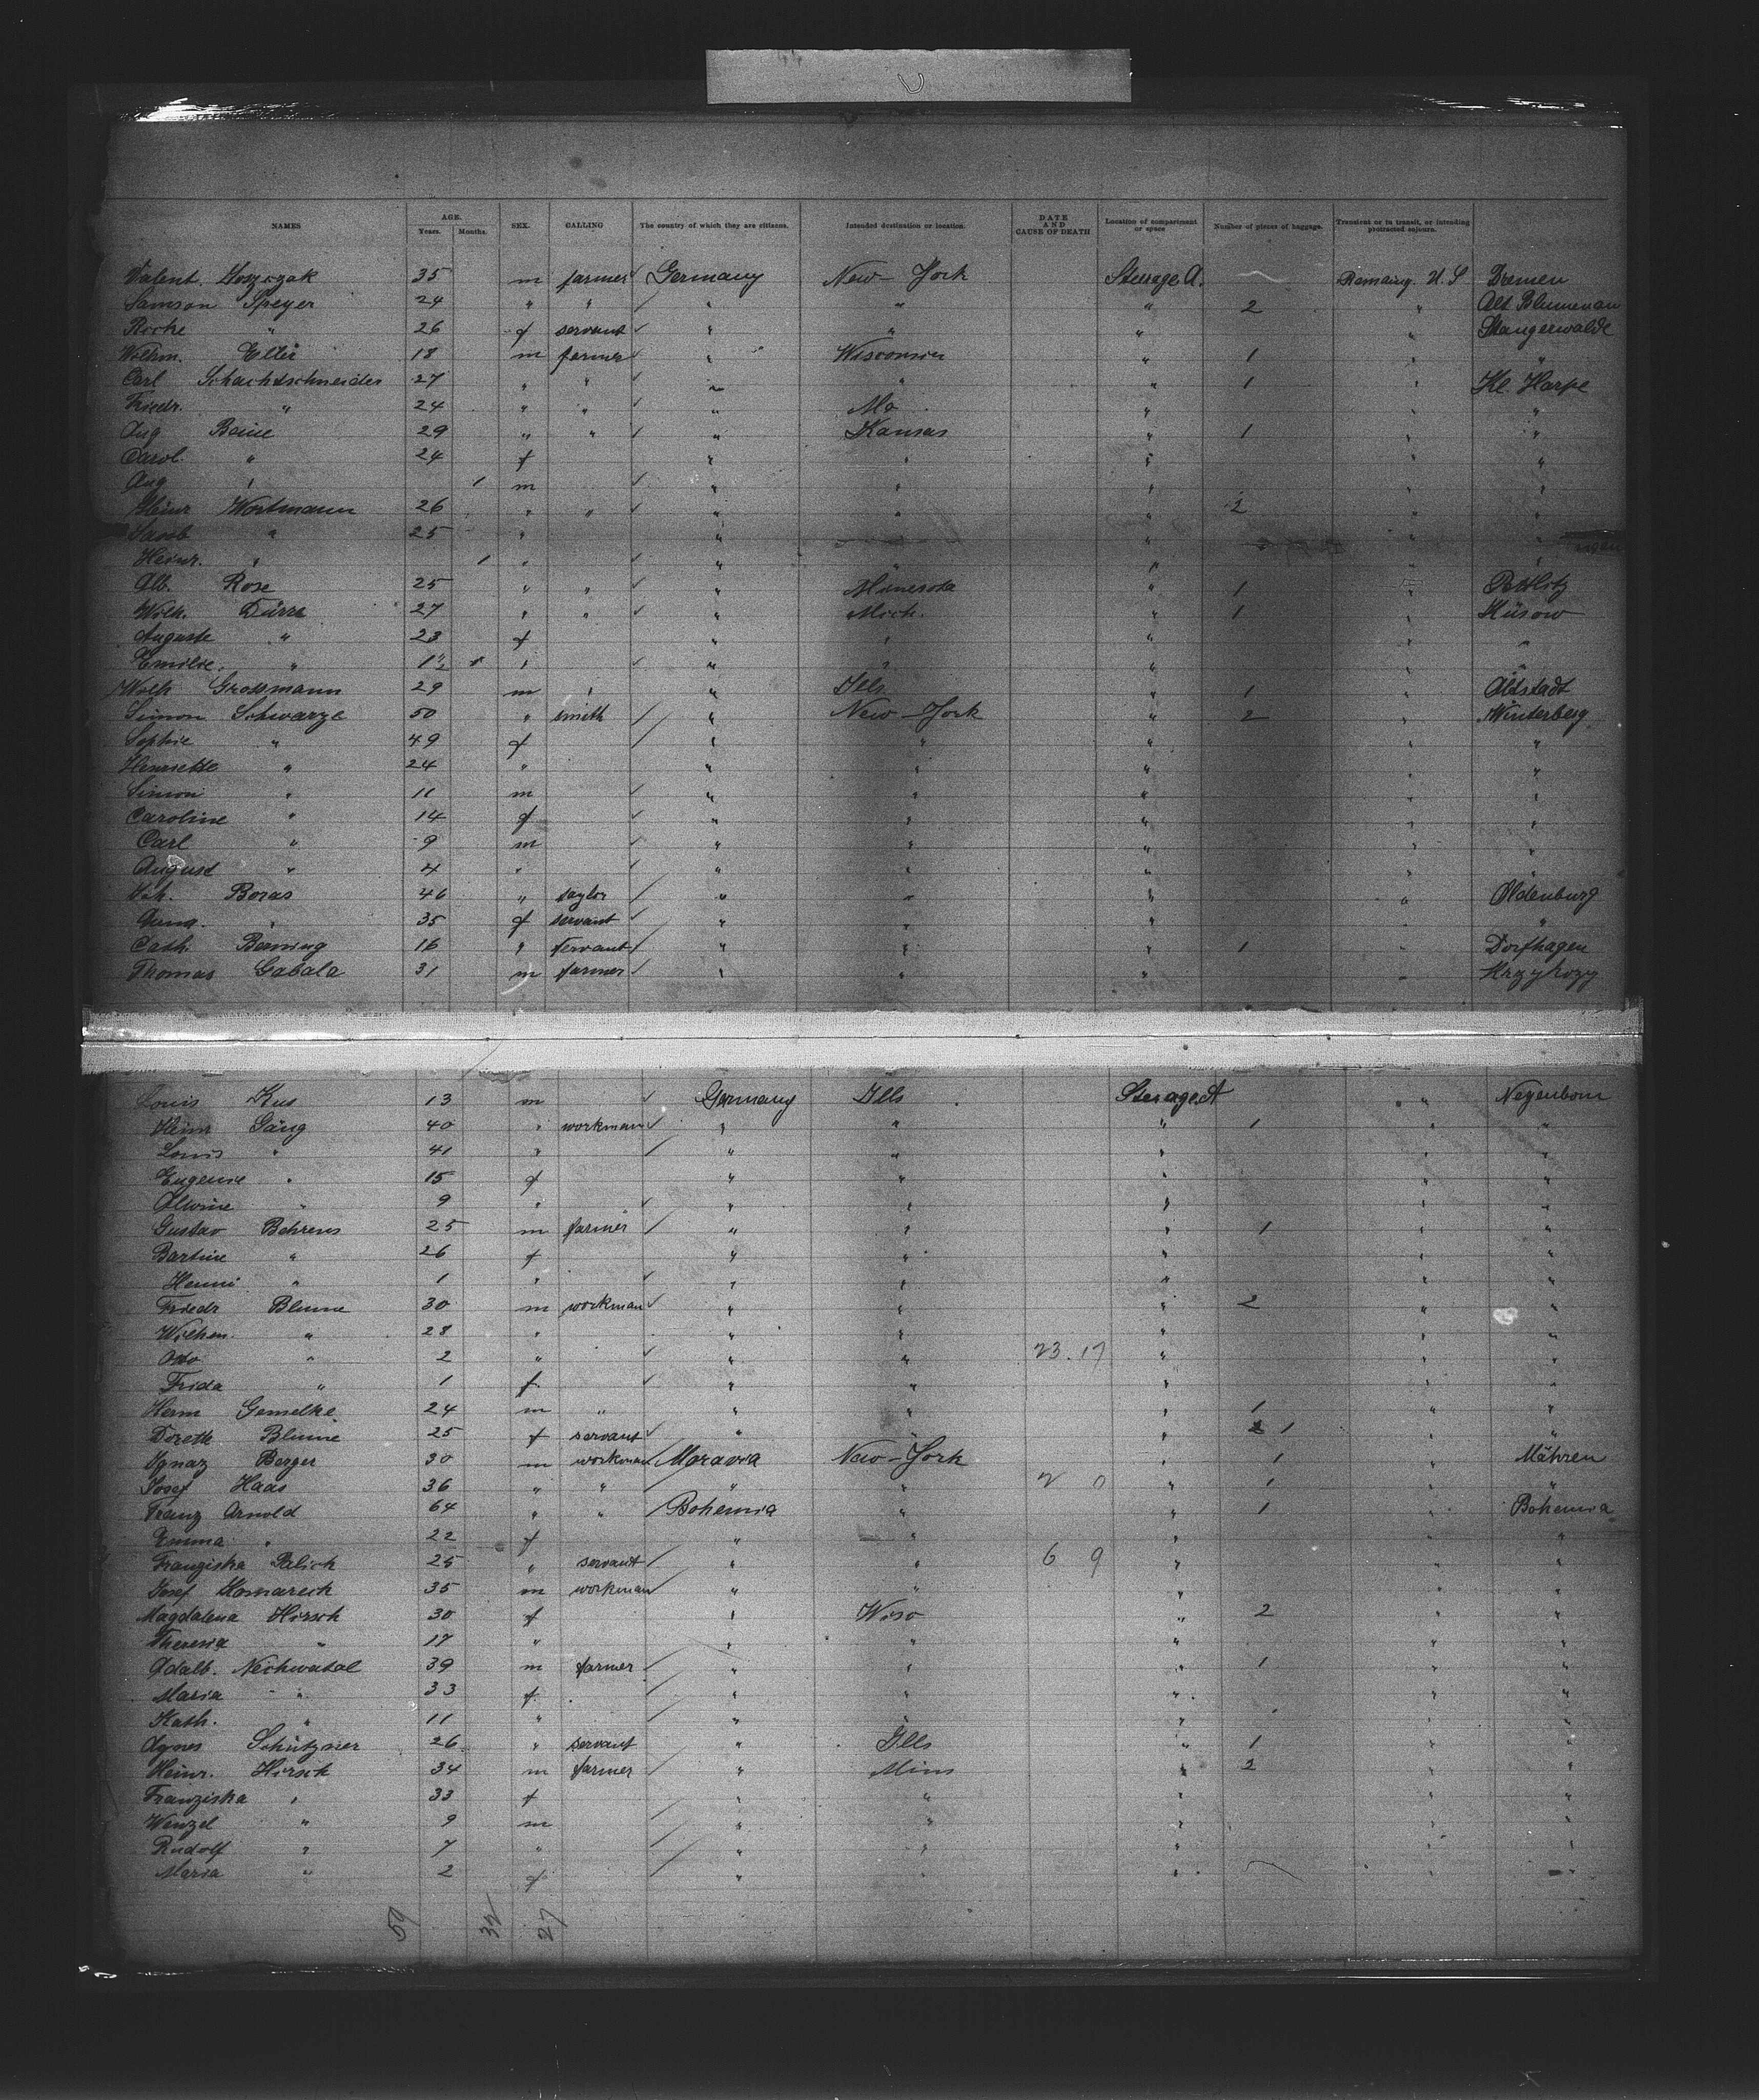 NAMES AGE. Years. Months. SEX. CALLING The country of which they are citizens. Intended destination or location. DATE AND CAUSE OF DEATH Location of compartment or space Number of pieces of baggage. Transient or in transit, or intending protracted sojourn.
Valent. 35 m farmer Germany New-York Steerage A. Remaing U. S Bremen
Samson Speyer 24 " " " " " 2 " Alt Blumenau
26 f servant " " " " Stangenwalde
Wilhm. 18 m farmer " Wisconsin " 1 " "
Carl Schachtschneider 27 " " " " " 1 " Kl. Harpe
Friedr. " 24 " " " Mo " " "
Aug Beine 29 " " " Kansas " 1 " "
Carol. " 24 f " " " " "
Aug " 1 m " " " " "
Heinr Wortmann 26 " " " " " 2 " "
Jacob " 25 " " " " "
Heinr. " 1 " " " " "
Alb. Rose 25 " " " Minesota " 1 "
Wilh. Dürre 27 " " " Mich. " 1 " Küsow
Auguste " 23 f " " " " "
Emilie. " 1 " " " " " "
Wilh Grossmann 29 m " " Ills " 1 " Altstadt
Simon Schwarze 50 " smith " New-York " 2 " Winterberg
Sophie " 49 f " " " " "
Henriette " 24 " " " " " "
Simon " 11 m " " " " "
Caroline " 14 f " " " " "
Carl " 9 m " " " " "
August " 4 " " " " "
Joh. Boras 46 " taylor " " " " Oldenburg
Anna. " 35 f servant " " " "
Cath. Berning 16 " servant " " " 1 " Dorfhagen
Thomas Gabala 31 m farmer " " " "
Louis Kus 13 m Germany Ills Sterage A " " Negenborn
Heinr Gäng 40 " workman " " " 1 " "
Louis " 41 " " " " " "
Eugenie " 15 f " " " " "
Alwine " 9 " " " " " "
Gustav Behrens 25 m farmer " " " 1 " "
Bertine " 26 f " " " " "
Henni " 1 " " " " " "
Friedr Blume 30 m workman " " " 2 " "
Wilhem. " 28 " " " " " "
Otto " 2 " " " 23.17 " " "
Frida " 1 f " " " " "
Herm Gemelke 24 m " " " " 1 " "
Doreth Blume 25 f servant " " " 1 " "
Ignaz Berger 30 m workman Moravia New-York " 1 " Mähren
Josef Haas 36 " " " " 2 0 " 1 " "
Franz Arnold 64 " " Bohemia " " 1 " Bohemia
Emma " 22 f " " " " "
Franziska Palich 25 " servant " " 6 9 " " "
Josef Komarech 35 m workman " " " " "
Magdalena Hirsch 30 f " Wisc " 2 " "
Theresia " 17 " " " " " "
Adalb. Nechwatal 39 m farmer " " " 1 " "
Maria " 33 f. " " " " "
Kath. " 11 " " " " " "
Agnes Schützner 26 " servant " Ills " 1 " "
Heinr. Hirsch 34 m farmer " Minn " 2 " "
Franziska " 33 f " " " " "
Wenzel " 9 m " " " " "
Rudolf " 7 " " " " " "
Maria " 2 f " " " "
59 32 27